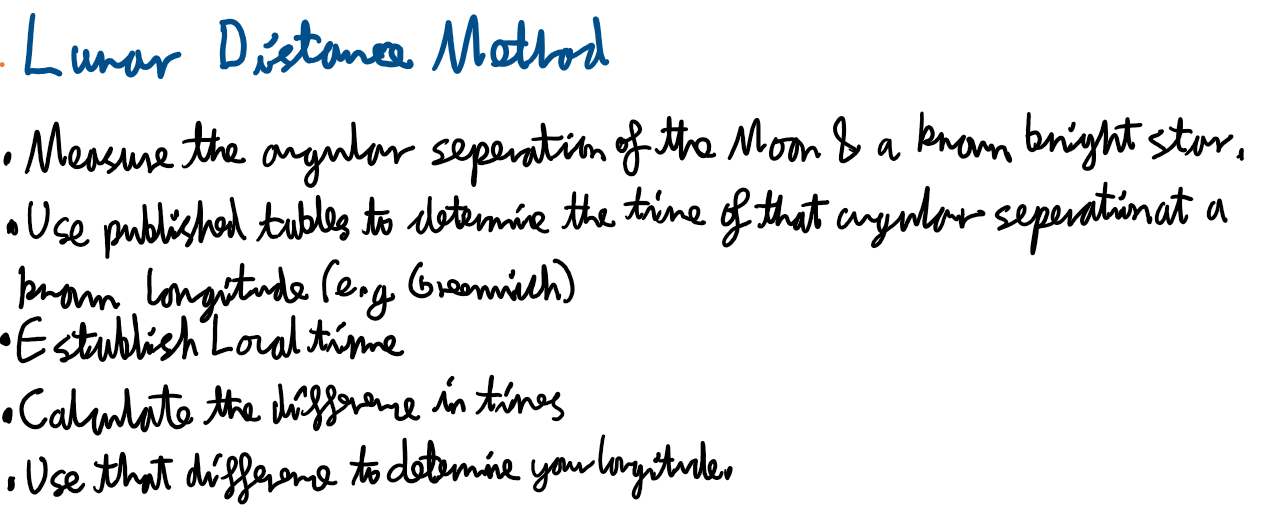 Lunar Distance Method
• Measure the angular seperation of the Moon & a known bright star.
• Use published tables to determine the time of that angular seperation at a
known longitude (e.g. Greenwich)
• Establish Local time
• Calculate the difference in times
• Use that difference to determine your longitude.